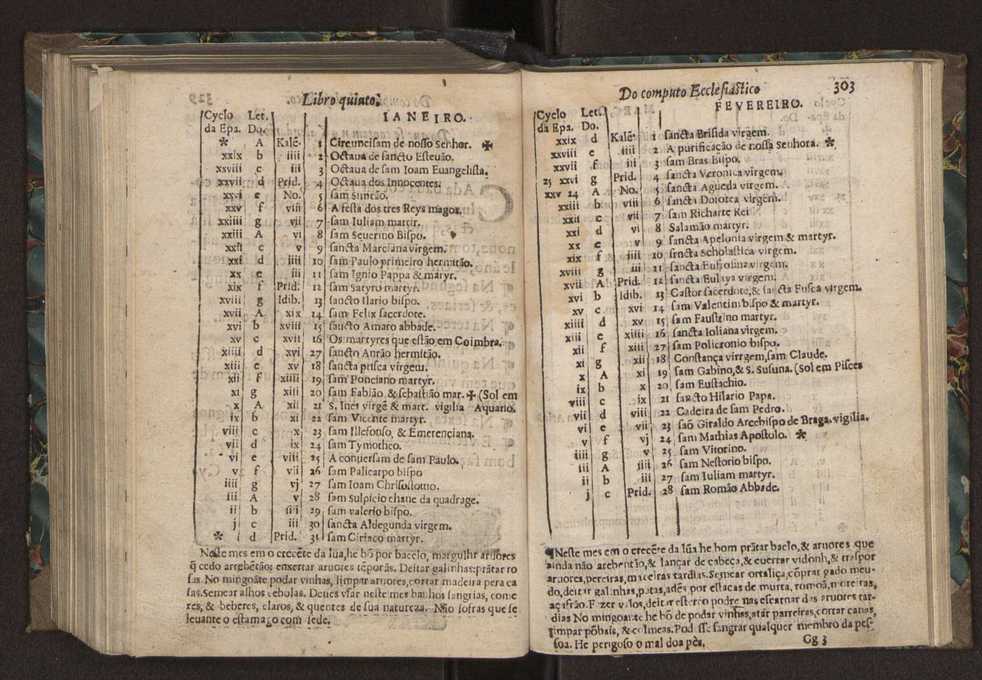 Libro quinto,
IANEIRO.
Cyclo Let.
da Epa. Do.
* A Kalē. 1 Circuncisam de nosso Senhor. ✠
xxix b iiii 2 Octaua de sancto Esteuão.
xxviii c iii 3 Octaua de sam Ioam Euangelista.
xxvii d Prid. 4 Octaua dos Innocentes.
xxvi e No. 5 sam Simeão.
xxv f viii 6 A festa dos tres Reys magos.
xxiiii g vii 7 sam Iuliam martir.
xxiii A vi 8 sam Seuerino Bispo.
xxii b v 9 sancta Marciana virgem.
xxi d iiii 10 sam Paulo primeiro hermitão.
xx e iii 11 sam Ignio Pappa & martyr.
xix f Prid. 12 sam Satyro martyr.
xviii g Idib. 13 sancto Ilario bispo.
xvii A xix 14 sam Felix sacerdote.
xvi b xviii 15 sancto Amaro abbade.
xv c xvii 16 Os martyres que estão em Coimbra.
xiiii d xvi 27 sancto Antão hermitão.
xiii e xv 18 sancta prisca virgem.
xii f xiiii 19 sam Ponciano martyr.
xi g xiii 20 sam Fabião & sebastião mar. ✠ (Sol em
x A xii 21 S. Ines virgē & mart. vigilia Aquario.
ix b xi 22 sam Vicente martyr.
viii c x 23 sam Illefonso, & Emerenciana.
vii d ix 24 sam Tymotheo.
vi e viii 25 A conuersam de sam Paulo.
v f vii 26 sam Palicarpo bispo
iiii g vj 27 sam Ioam Chrisostomo.
iii A v 28 sam Sulpicio chaue da quadrage.
ii b iiii 29 sam valerio bispo.
j c iii 30 sancta Aldegunda virgem.
* d Prid. 31 sam Ciriaco martyr.
Neste mes em o crecēte da lũa, he bõ por bacelo, margulhr aruores
q̃ cedo arrebētão: enxertar aruores tēporãs. Deitar galinhas: prātar ro
sas. No mingoāte podar vinhas, limpar aruores, cortar madeira pera ca
sas. Semear alhos cebolas. Deues vsar neste mes banhos sangrias, come
res, & beberes, claros, & quentes de sua natureza. Não sofras que se
leuante o estamago com sede.
Do computo Ecclesiastico 303
FEVEREIRO.
Cyclo Let.
da Epa. Do.
xxix d Kalē. 1 sancta Brisida virgem.
xxviii e iiii 2 A purificação de nossa Senhora. *
xxvii f iii 3 sam Bras Bispo.
25 xxvi g Prid. 4 sancta Veronica virgem.
xxv 24 A No. 5 sancta Agueda virgem.
xxiii b viii 6 sancta Dorotea virgem.
xxii c vii 7 sam Richarte Rei
xxi d vi 8 Salamão martyr.
xx e v 9 sancta Apelonia virgem & martyr.
xix f iiii 10 sancta Scholastica virgem.
xviii g iii 11 sancta Eufrosina virgem.
xvii A Prid. 12 sancta Eulaya virgem.
xvi b Idib. 13 Castor sacerdote, & sancta Fusca virgem.
xv c xvi 14 sam Valentim bispo & martyr.
xiiii d xv 15 sam Faustino martyr.
xiii e xiiii 16 sancta Ioliana virgem.
xii f xiii 27 sam Policronio bispo.
xi g xii 18 Constança virrgem, sam Claude.
x A xi 19 sam Gabino, & S. Susana. (Sol em Pisces
ix b x 20 sam Eustachio.
viii c ix 21 sancto Hilario Papa.
vii d viii 22 Cadeira de sam Pedro.
vi e vii 23 saõ Giraldo Arcebispo de Braga. vigilia.
v f vj 24 sam Mathias Apostolo. *
iiii g v 25 sam Vitorino.
iii A iiii 26 sam Nestorio bispo.
ii b iii 27 sam Iuliam martyr.
j c Prid. 28 sam Romão Abbade.
Neste mes em o crecēte da lũa he bom prātar baclo, & aruores que
ainda não arebentão, & lançar de cabeça, & enertar vidonh, & traspor
aruores, pereiras, maceiras tardias. Semear ortaliça, cõprar gado meu-
do, deitar galinhas, patas, adēs por estacas de murta, romoã, moreiras,
açafrão. Fazer valos, deitar esterco podre nas escarnar das aruores tar-
dias No mingoante he bõ de podar vinhas, atar parreiras, cortar canas,
limpar põbais, & colmeas. Podesse sangrar qualquer membro da pes-
soa. He perigoso o mal doa pès.
Gg 3